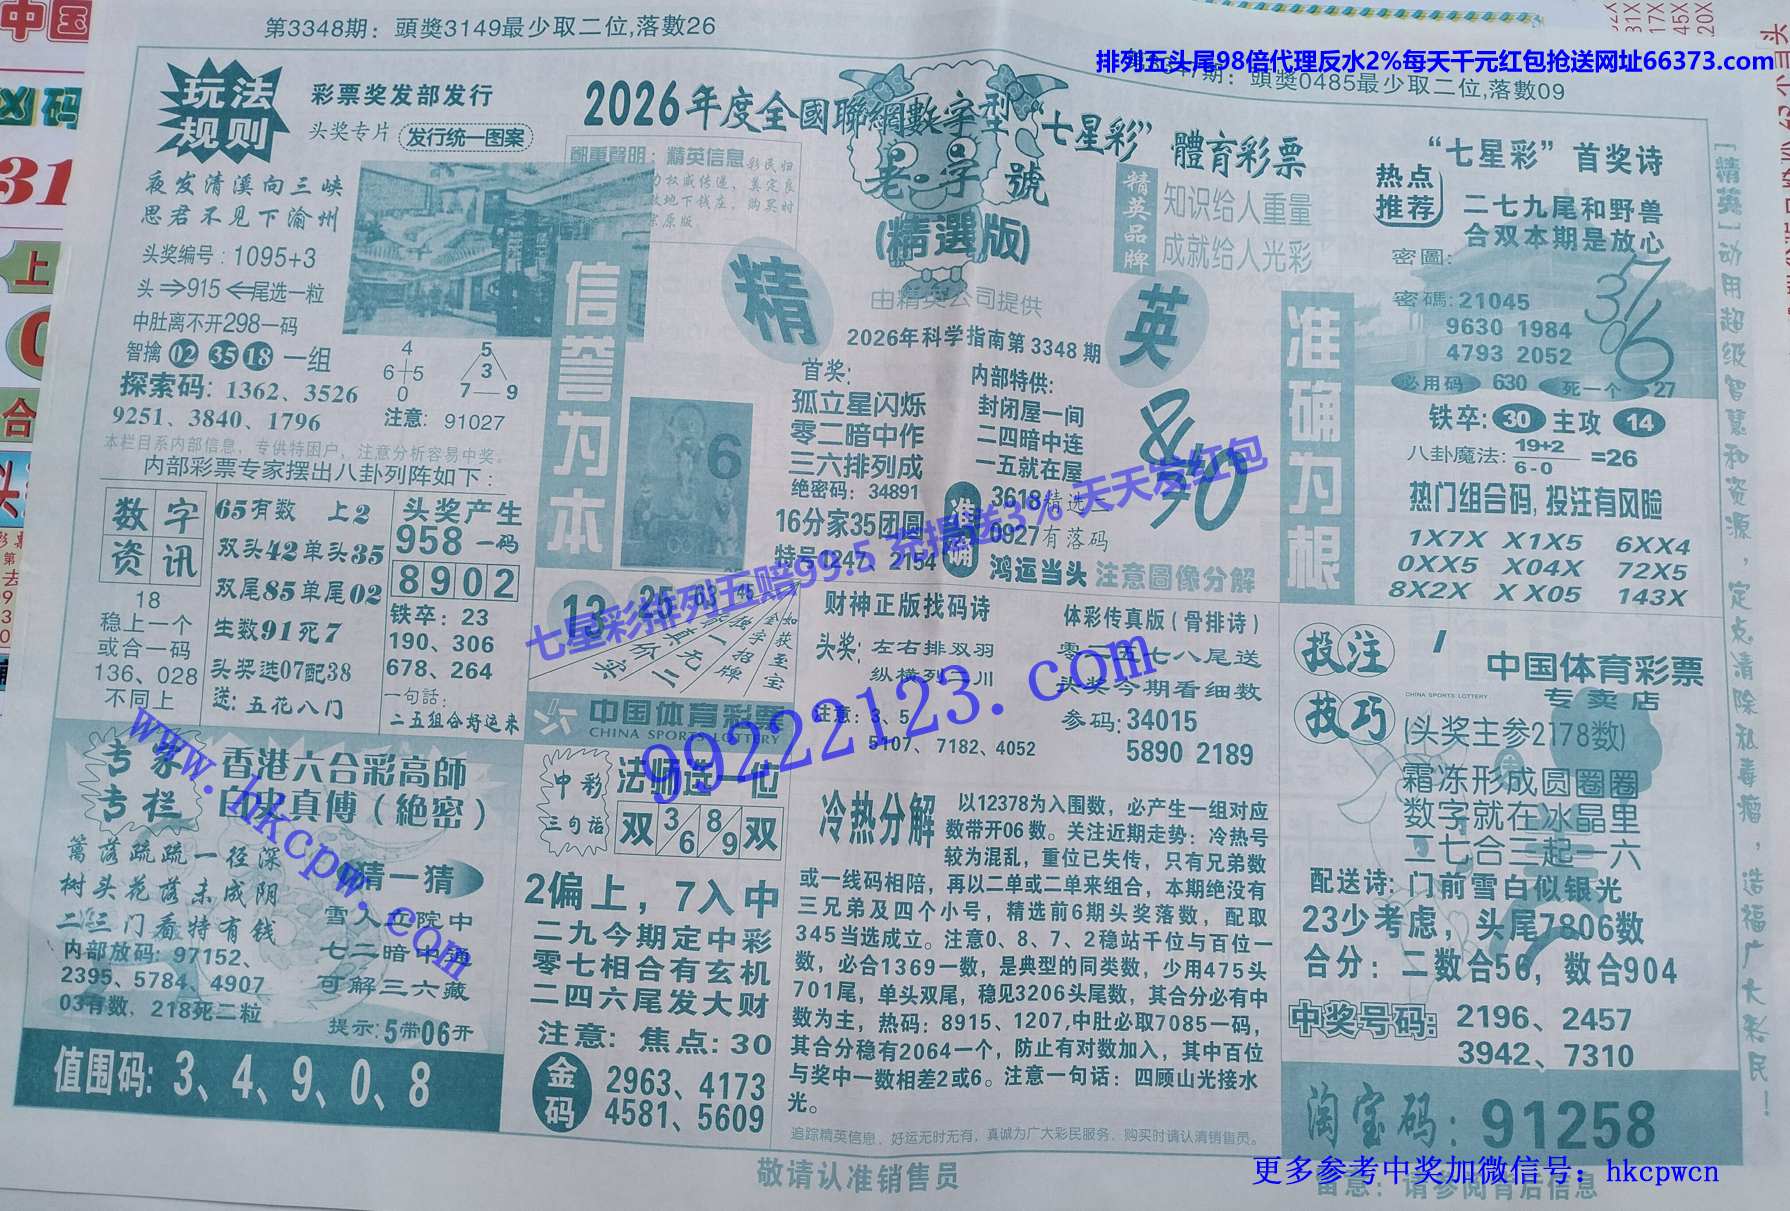 第3348期：頭獎3149最少取二位,落數26
排列五头尾98倍代理反水2%每天千元红包抢送网址66373.com
頭獎0485最少取二位,落數09
玩法
规则
彩票奖发部发行
头奖专片
发行统一图案
2026年度全國聯網數字型“七星彩”體育彩票
老字號
(精選版)
由精英公司提供
鄭重聲明：精英信息
精英品牌
知识给人重量
成就给人光彩
“七星彩”首奖诗
热点
推荐
二七九尾和野兽
合双本期是放心
密圖:
密碼:21045
9630 1984
4793 2052
必用码 630 死一个 27
铁卒: 30 主攻 14
八卦魔法: 19+2
6-0 =26
热门组合码,投注有风险
1X7X X1X5 6XX4
0XX5 X04X 72X5
8X2X XX05 143X
夜发清溪向三峡
思君不见下渝州
头奖编号: 1095+3
头⇒915⇐尾选一粒
中肚离不开298一码
智擒 02 35 18 一组
探索码: 1362、3526
9251、3840、1796
4
6+5
0
5
3
7—9
注意: 91027
本栏目系内部信息，专供特困户，注意分析容易中奖。
内部彩票专家摆出八卦列阵如下：
数字
资讯
18
稳上一个
或合一码
136、028
不同上
65有数 上2
双头42单头35
双尾85单尾02
生数91死7
头奖选07配38
送: 五花八门
头奖产生
958一码
8902
铁卒: 23
190、306
678、264
一句話:
二五组合好运来
信誉为本
精
英
准确为根
2026年科学指南第3348期
首奖:
孤立星闪烁
零二暗中作
三六排列成
绝密码: 34891
16分家35团圆
特号1247、2154
准确
内部特供:
封闭屋一间
二四暗中连
一五就在屋
3618精选二
0927有落码
鸿运当头
注意圖像分解
6
七星彩排列五赔99.5 充提送3% 天天发红包
中国体育彩票
CHINA SPORTS LOTTERY
财神正版找码诗
头奖: 左右排双羽
纵横列二川
注意: 3、5
5107、7182、4052
体彩传真版（骨排诗）
头奖今期看细数
参码: 34015
5890 2189
99222123.com
www.hkcpw.com
投注
技巧
中国体育彩票
CHINA SPORTS LOTTERY
专卖店
(头奖主参2178数)
霜冻形成圆圈圈
数字就在冰晶里
二七合三起一六
配送诗: 门前雪白似银光
23少考虑，头尾7806数
合分：二数合56，数合904
中奖号码: 2196、2457
3942、7310
淘宝码: 91258
专家
专栏
香港六合彩高師
白史真傳（絶密）
篱落疏疏一径深
树头花落未成阴
二三门看特有钱
内部放码: 97152、
2395、5784、4907
03有数，218死二粒
猜一猜
雪人立院中
七二暗中通
可解三六藏
提示:5带06开
值围码: 3、4、9、0、8
中彩
三句话
法师选一位
双 3/6 8/9 双
2偏上，7入中
二九今期定中彩
零七相合有玄机
二四六尾发大财
注意: 焦点: 30
金码
2963、4173
4581、5609
冷热分解
以12378为入围数，必产生一组对应
数带开06数。关注近期走势：冷热号
较为混乱，重位已失传，只有兄弟数
或一线码相陪，再以二单或二单来组合，本期绝没有
三兄弟及四个小号，精选前6期头奖落数，配取
345当选成立。注意0、8、7、2稳站千位与百位一
数，必合1369一数，是典型的同类数，少用475头
701尾，单头双尾，稳见3206头尾数，其合分必有中
数为主，热码：8915、1207,中肚必取7085一码，
其合分稳有2064一个，防止有对数加入，其中百位
与奖中一数相差2或6。注意一句话：四顾山光接水
光。
追踪精英信息，好运无时无有，真诚为广大彩民服务，购买时请认清销售员。
敬请认准销售员
[精英]动用超级智慧和资源，定点清除私毒瘤，造福广大彩民！
更多参考中奖加微信号：hkcpwcn
留意：请参阅背后信息